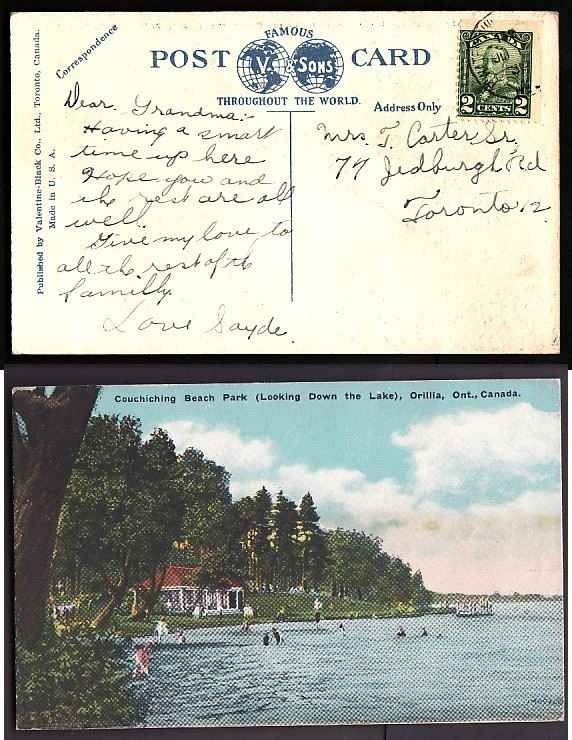 FAMOUS
POST CARD
V. & SONS
THROUGHOUT THE WORLD.
Correspondence
Address Only
Published by Valentine-Black Co., Ltd., Toronto, Canada.
Made in U. S. A.
CANADA
2 CENTS 2
Dear Grandma:-
Having a smart
time up here
Hope you and
the rest are all
well.
Give my love to
all the rest of the
familly.
Love Sayde.
Mrs. T. Carter Sr.
77 Jedburgh Rd
Toronto 12
Couchiching Beach Park (Looking Down the Lake), Orillia, Ont., Canada.